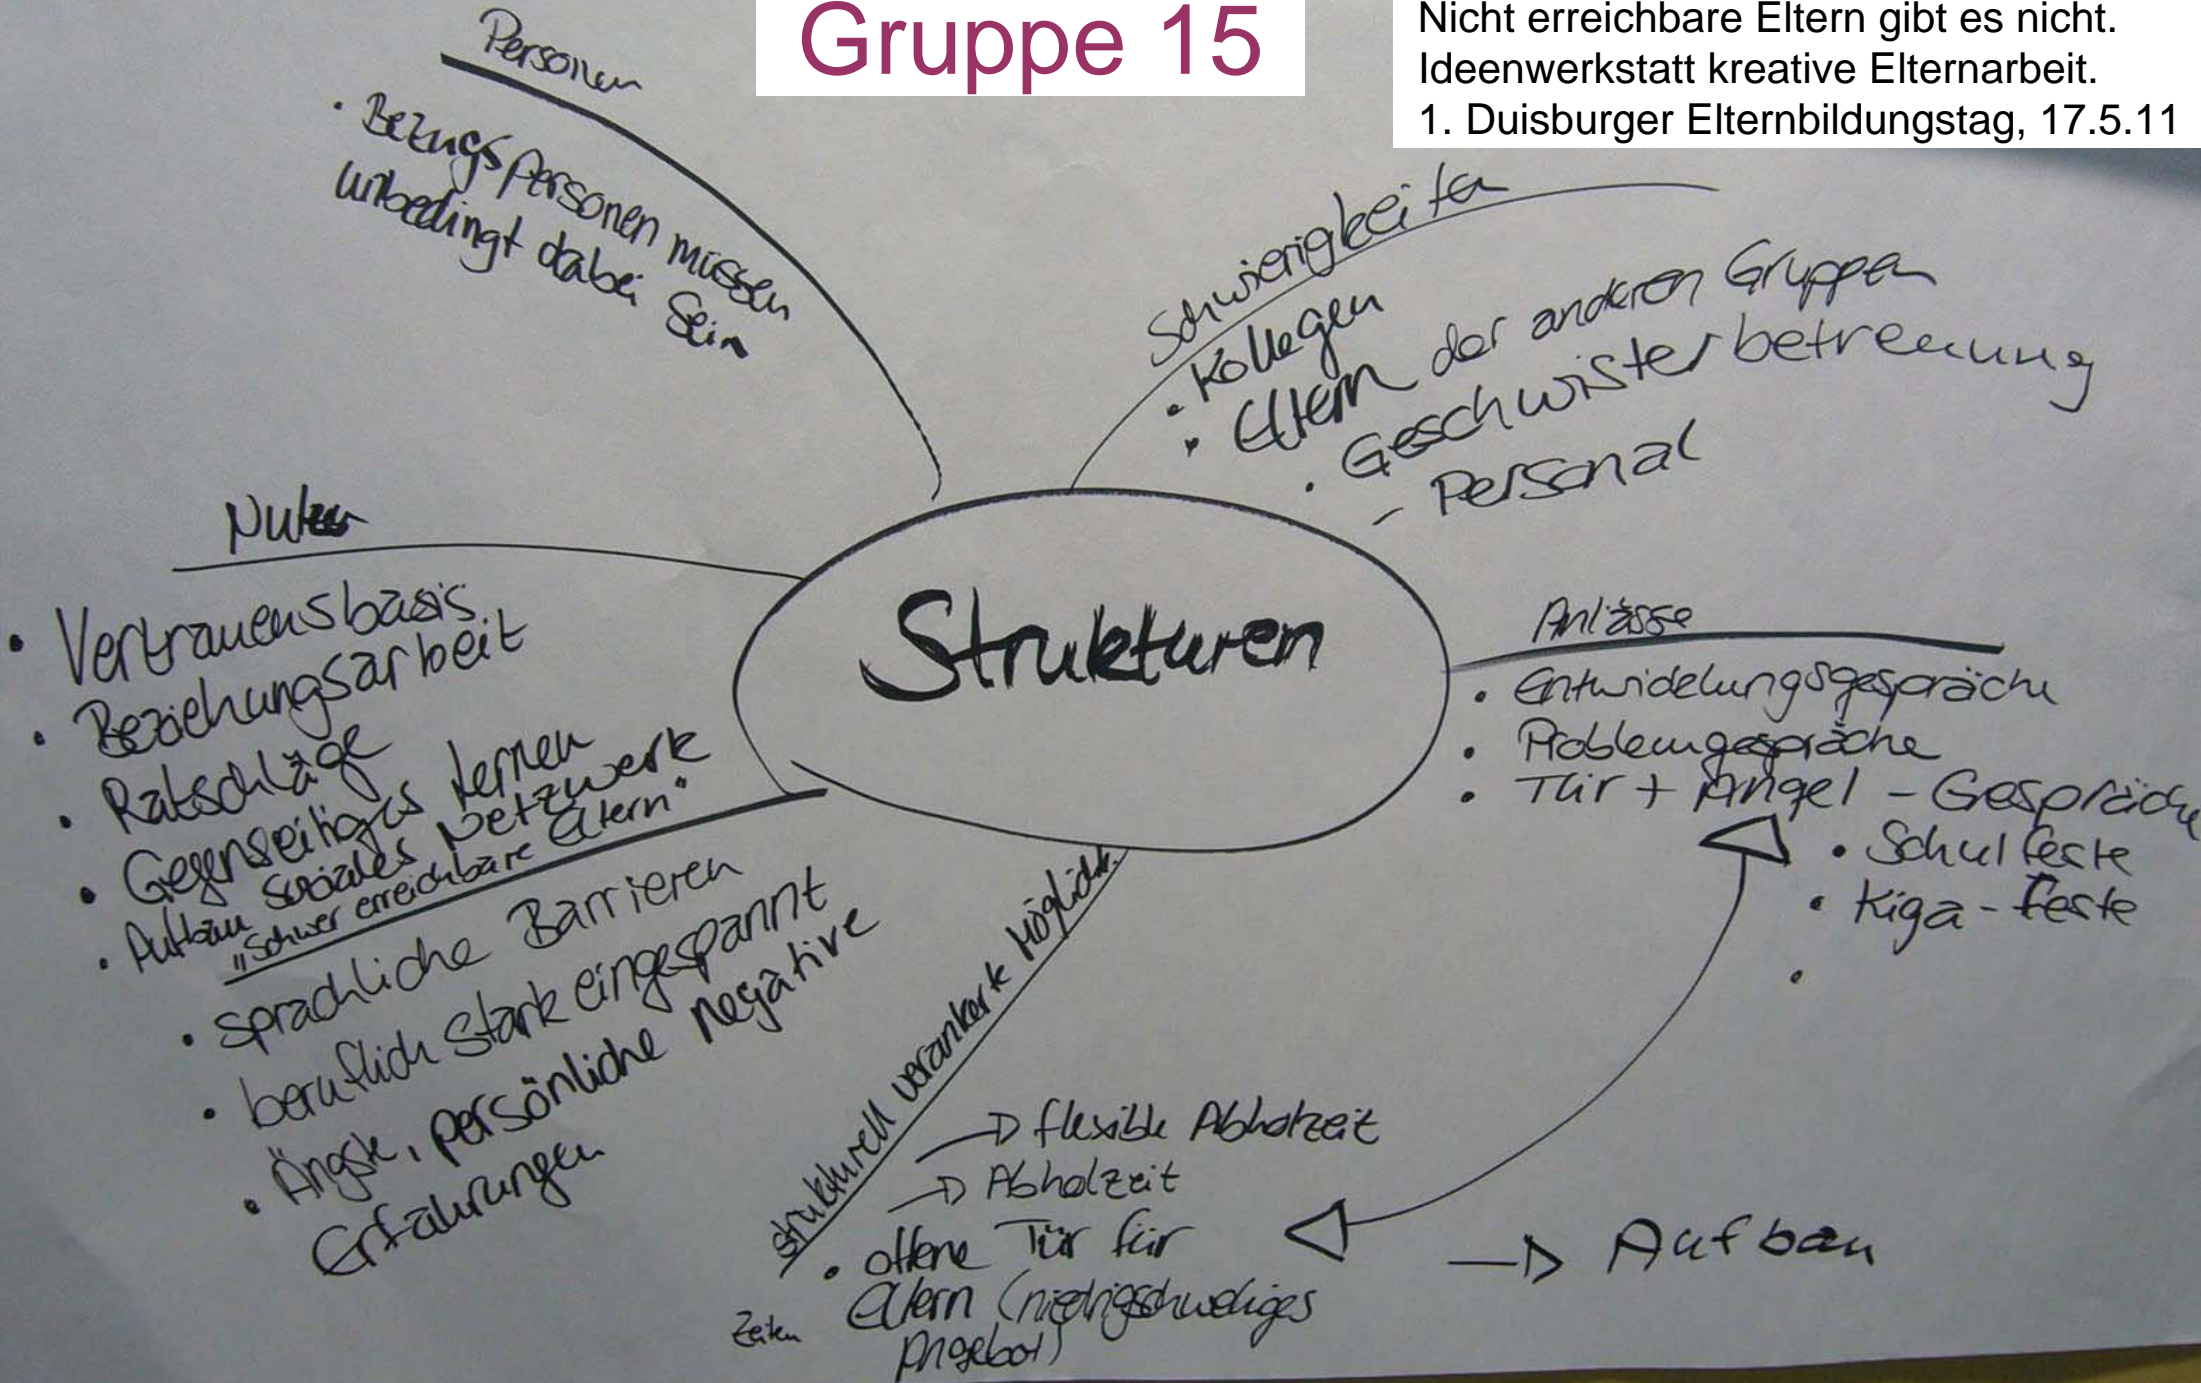 Gruppe 15
Nicht erreichbare Eltern gibt es nicht.
Ideenwerkstatt kreative Elternarbeit.
1. Duisburger Elternbildungstag, 17.5.11
Personen
• Bezugspersonen müssen
unbedingt dabei sein
Schwierigkeiten
• Kollegen
• Eltern der anderen Gruppen
• Geschwisterbetreuung
- Personal
Strukturen
Nutzen
• Vertrauensbasis
• Beziehungsarbeit
• Ratschläge
• Gegenseitiges Lernen
• Aufbau soziales Netzwerk
„Schwer erreichbare Eltern"
• sprachliche Barrieren
• beruflich stark eingespannt
• Ängste, persönliche negative
Erfahrungen
Anlässe
• Entwicklungsgespräche
• Problemgespräche
• Tür + Angel - Gespräche
• Schulfeste
• Kiga - Feste
•
strukturell verankerte Möglichk.
→ flexible Abholzeit
→ Abholzeit
• offene Tür für
Eltern (niedrigschwelliges
Angebot)
Zeiten
→ Aufbau